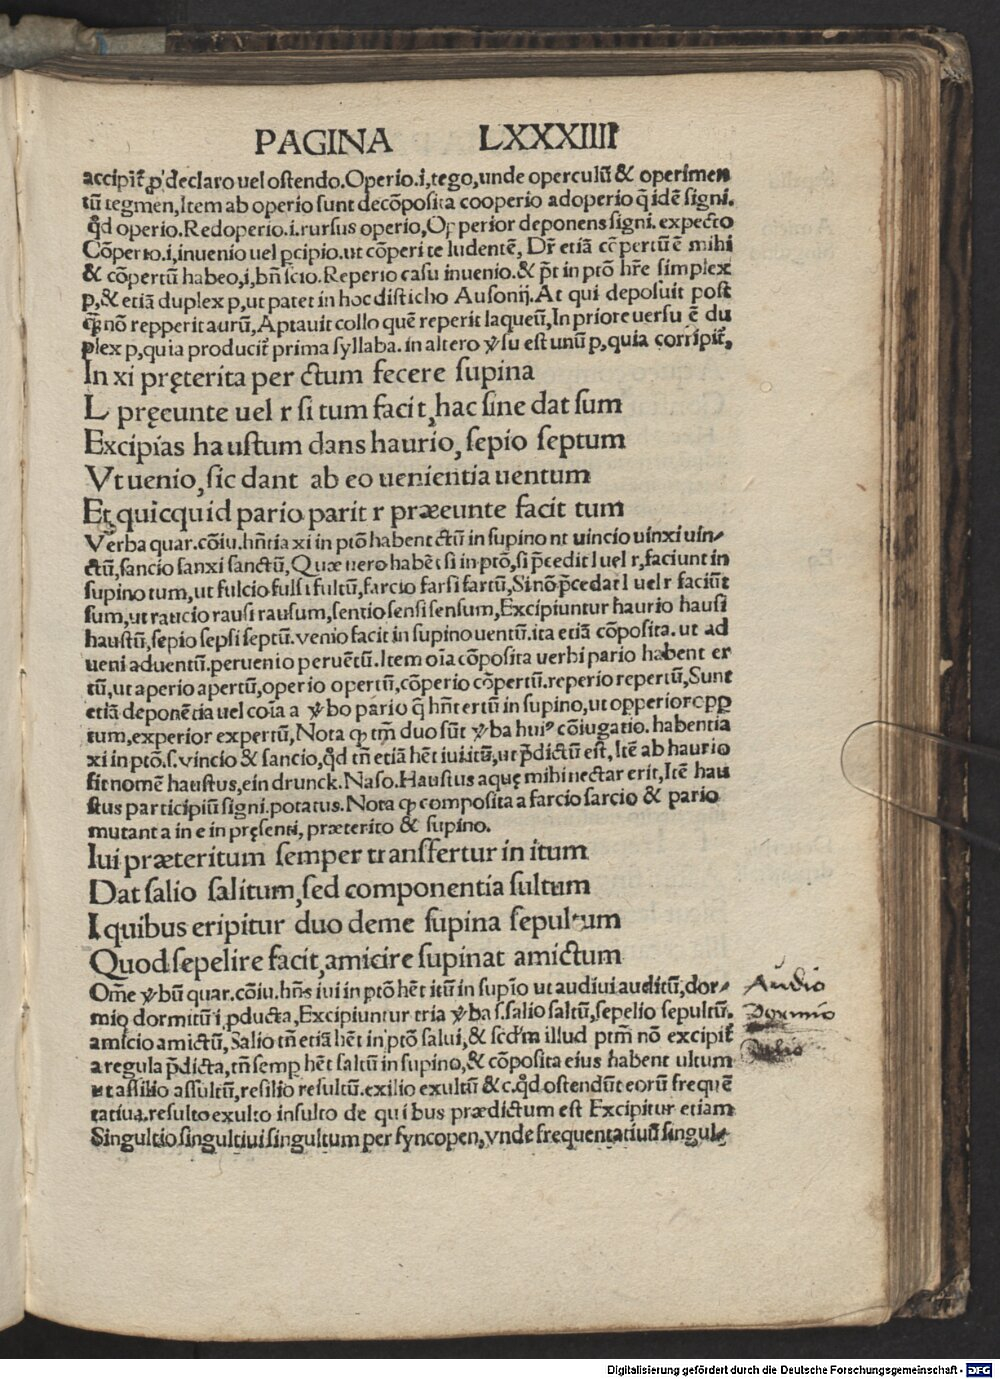 PAGINA LXXXIIII
accipit̃ ꝓ declaro uel ostendo.Operio.i,tego,unde operculũ & operimen
tũ tegmen,Item ab operio sunt decõposita cooperio adoperio q̃ idẽ signi.
qd̃ operio.Redoperio.i.rursus operio,Opperior deponens signi.expecto
Cõperio.i,inuenio uel p̱cipio.ut cõperi te ludentẽ, Dr̃ etiã cõpertũ ẽ mihi
& cõpertũ habeo,i,bñ scio.Reperio casu inuenio.& p̃t in ptõ hr̃e simplex
p,& etiã duplex p,ut patet in hoc disticho Ausonij.At qui deposuit post
ꝙ̃ nõ repperit aurũ,Aptauit collo quẽ reperit laqueũ,In priore uersu ẽ du
plex p,quia producit̃ prima syllaba.in altero ꝟsu est unũ p,quia corripit̃,
In xi pręterita per ctum fecere supina
L pręeunte uel r si tum facit,hac sine dat sum
Excipias haustum dans haurio,sepio septum
Vt uenio,sic dant ab eo uenientia uentum
Et quicquid pario parit r præeunte facit tum
Verba quar.cõiu.hñtia xi in ptõ habent ctũ in supino nt uincio uinxi uin⸗
ctũ,sancio sanxi sanctũ,Quæ uero habẽt si in ptõ,si p̃cedit l uel r,faciunt in
supino tum,ut fulcio fulsi fultũ,farcio farsi fartũ,Si nõ p̃cedat l uel r faciũt
sum,ut raucio rausi rausum,sentio sensi sensum,Excipiuntur haurio hausi
haustũ,sepio sepsi septũ.venio facit in supino uentũ.ita etiã cõposita.ut ad
ueni aduentũ.peruenio peruẽtũ.Item oĩa cõposita uerbi pario habent er
tũ,ut aperio apertũ,operio opertũ,cõperio cõpertũ.reperio repertũ,Sunt
etiã deponẽtia uel cõia a ꝟbo pario q̃ hñt ertũ in supino,ut opperior opp
tum,experior expertũ,Nota ꝙ tm̃ duo sũt ꝟba huiꝰ cõiugatio.habentia
xi in ptõ.s.vincio & sancio,qd̃ tñ etiã hẽt iui.itũ,ut p̃dictũ est,Itẽ ab haurio
fit nomẽ haustus,ein drunck.Naso.Haustus aquę mihi nectar erit,Itẽ hau
stus participiũ signi.potatus.Nota ꝙ composita a farcio sarcio & pario
mutant a in e in pręsenti, præterito & supino.
Iui præteritum semper transfertur in itum
Dat salio salitum,sed componentia sultum
I quibus eripitur duo deme supina sepultum
Quod sepelire facit,amicire supinat amictum
Om̃e ꝟbũ quar.cõiu.hñs iui in ptõ hẽt itũ in supĩo ut audiui auditũ,dor⸗
mio dormitũ i ꝓducta,Excipiuntur tria ꝟba s.salio saltũ,sepelio sepultũ.
amicio amictũ,Salio tñ etiã hẽt in ptõ salui,& scd̃m illud ptm̃ nõ excipit̃
a regula p̃dicta,tñ semp hẽt saltũ in supino,& cõposita eius habent ultum
ut assilio assultũ,resilio resultũ.exilio exultũ &c.qd̃ ostendũt eorũ frequẽ
tatiua.resulto exulto insulto de quibus prædictum est Excipitur etiam
Singultio singultiui singultum per syncopen,vnde frequentatiuũ singul⸗
Audio
Dormio
Digitalisierung gefördert durch die Deutsche Forschungsgemeinschaft - DFG